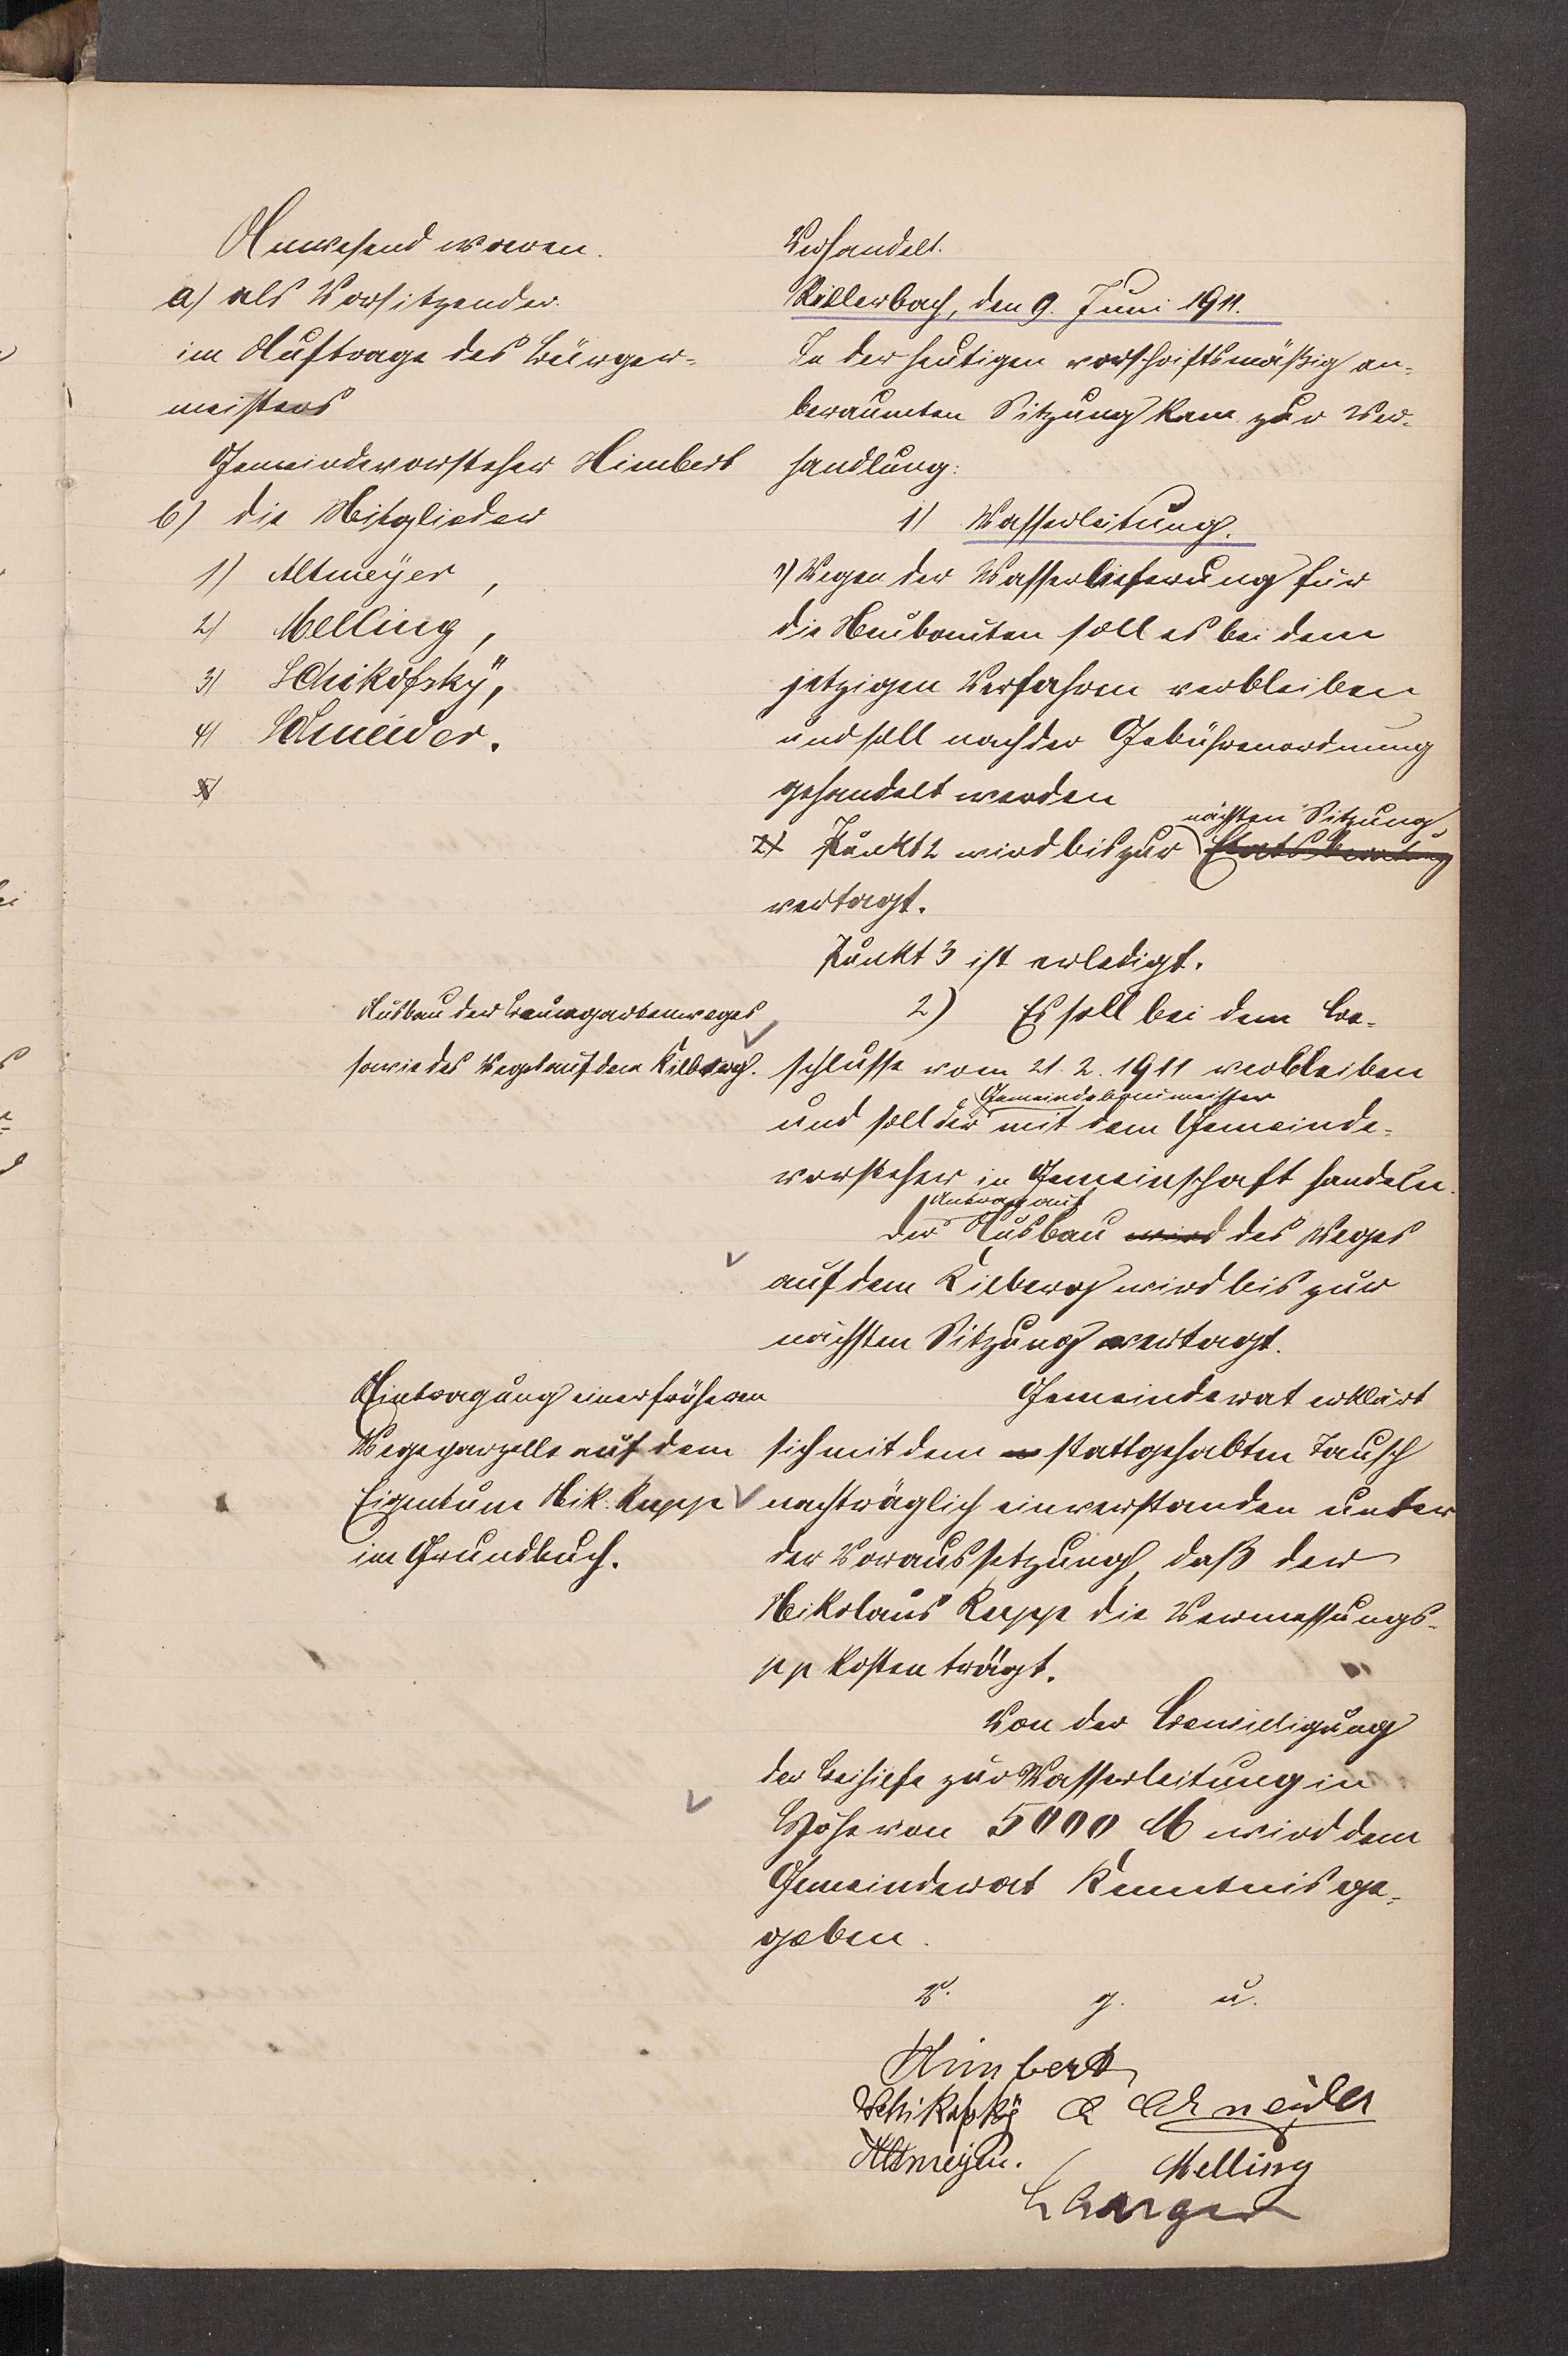 Anwesend waren.
a) als Vorsitzender.
im Auftrage des Bürger-
meisters
Gemeindevorsteher Himbert
b) die Mitglieder
1) Altmeÿer,
2) Melling,
3) Schikofskÿ,
4) Schneider.
5)
Verhandelt.
den 9. Juni 1911.
In der heutigen vorschriftsmäßig an-
beraumten Sitzung kam zur Ver-
handlung:
1) Wasserleitung.
1) Wegen der Wasserlieferung für
die Neubauten soll es bei dem
jetzigen Verfahren verbleiben
und soll nach der Gebührenordnung
gehandelt werden
nächsten Sitzung
2) Punkt 2 wird bis zur Etatsberatung
vertagt.
Punkt 3 ist erledigt.
Ausbau des Baumgartenweges
sowie des Weges auf dem Kilberg.
2) Es soll bei dem Be-
schlusse vom 21.2.1911 verbleiben
Gemeindebaumeister
und soll der mit dem Gemeinde-
vorsteher in Gemeinschaft handeln.
Antrag auf
Der Ausbau wird des Weges
auf dem Kilberg wird bis zur
nächsten Sitzung vertagt.
Eintragung einer früheren
Wegeparzelle auf dem
Eigentum Nik. Rupp
im Grundbuch.
Gemeinderat erklärt
sich mit dem stattgehabten Tausch
nachträglich einverstanden unter
der Voraussetzung, daß der
Nikolaus Rupp die Vermessungs-
pp Kosten trägt.
Von der Bewilligung
der Beihilfe zur Wasserleitung in
Höhe von 5000 M wird dem
Gemeinderat Kenntnis ge-
geben.
V. g. u.
Himbert
Schikofskÿ Schneider
Altmeyer. Melling